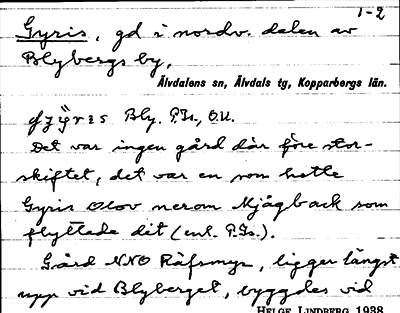 1-2
Gyris, gd i nordv. delen av
Blybergs by,
Älvdalens sn, Älvdals tg, Kopparbergs län.
Bly. P.Is., O.U.
Det var ingen gård där före stor-
skiftet, det var en som hette
Gyris Olov nerom Mjågback som
flyttade dit (enl. P.Is.).
Gård NNO Råfsmyr, ligger längst
upp vid Blyberget, byggdes vid
HELGE LINDBERG 1938